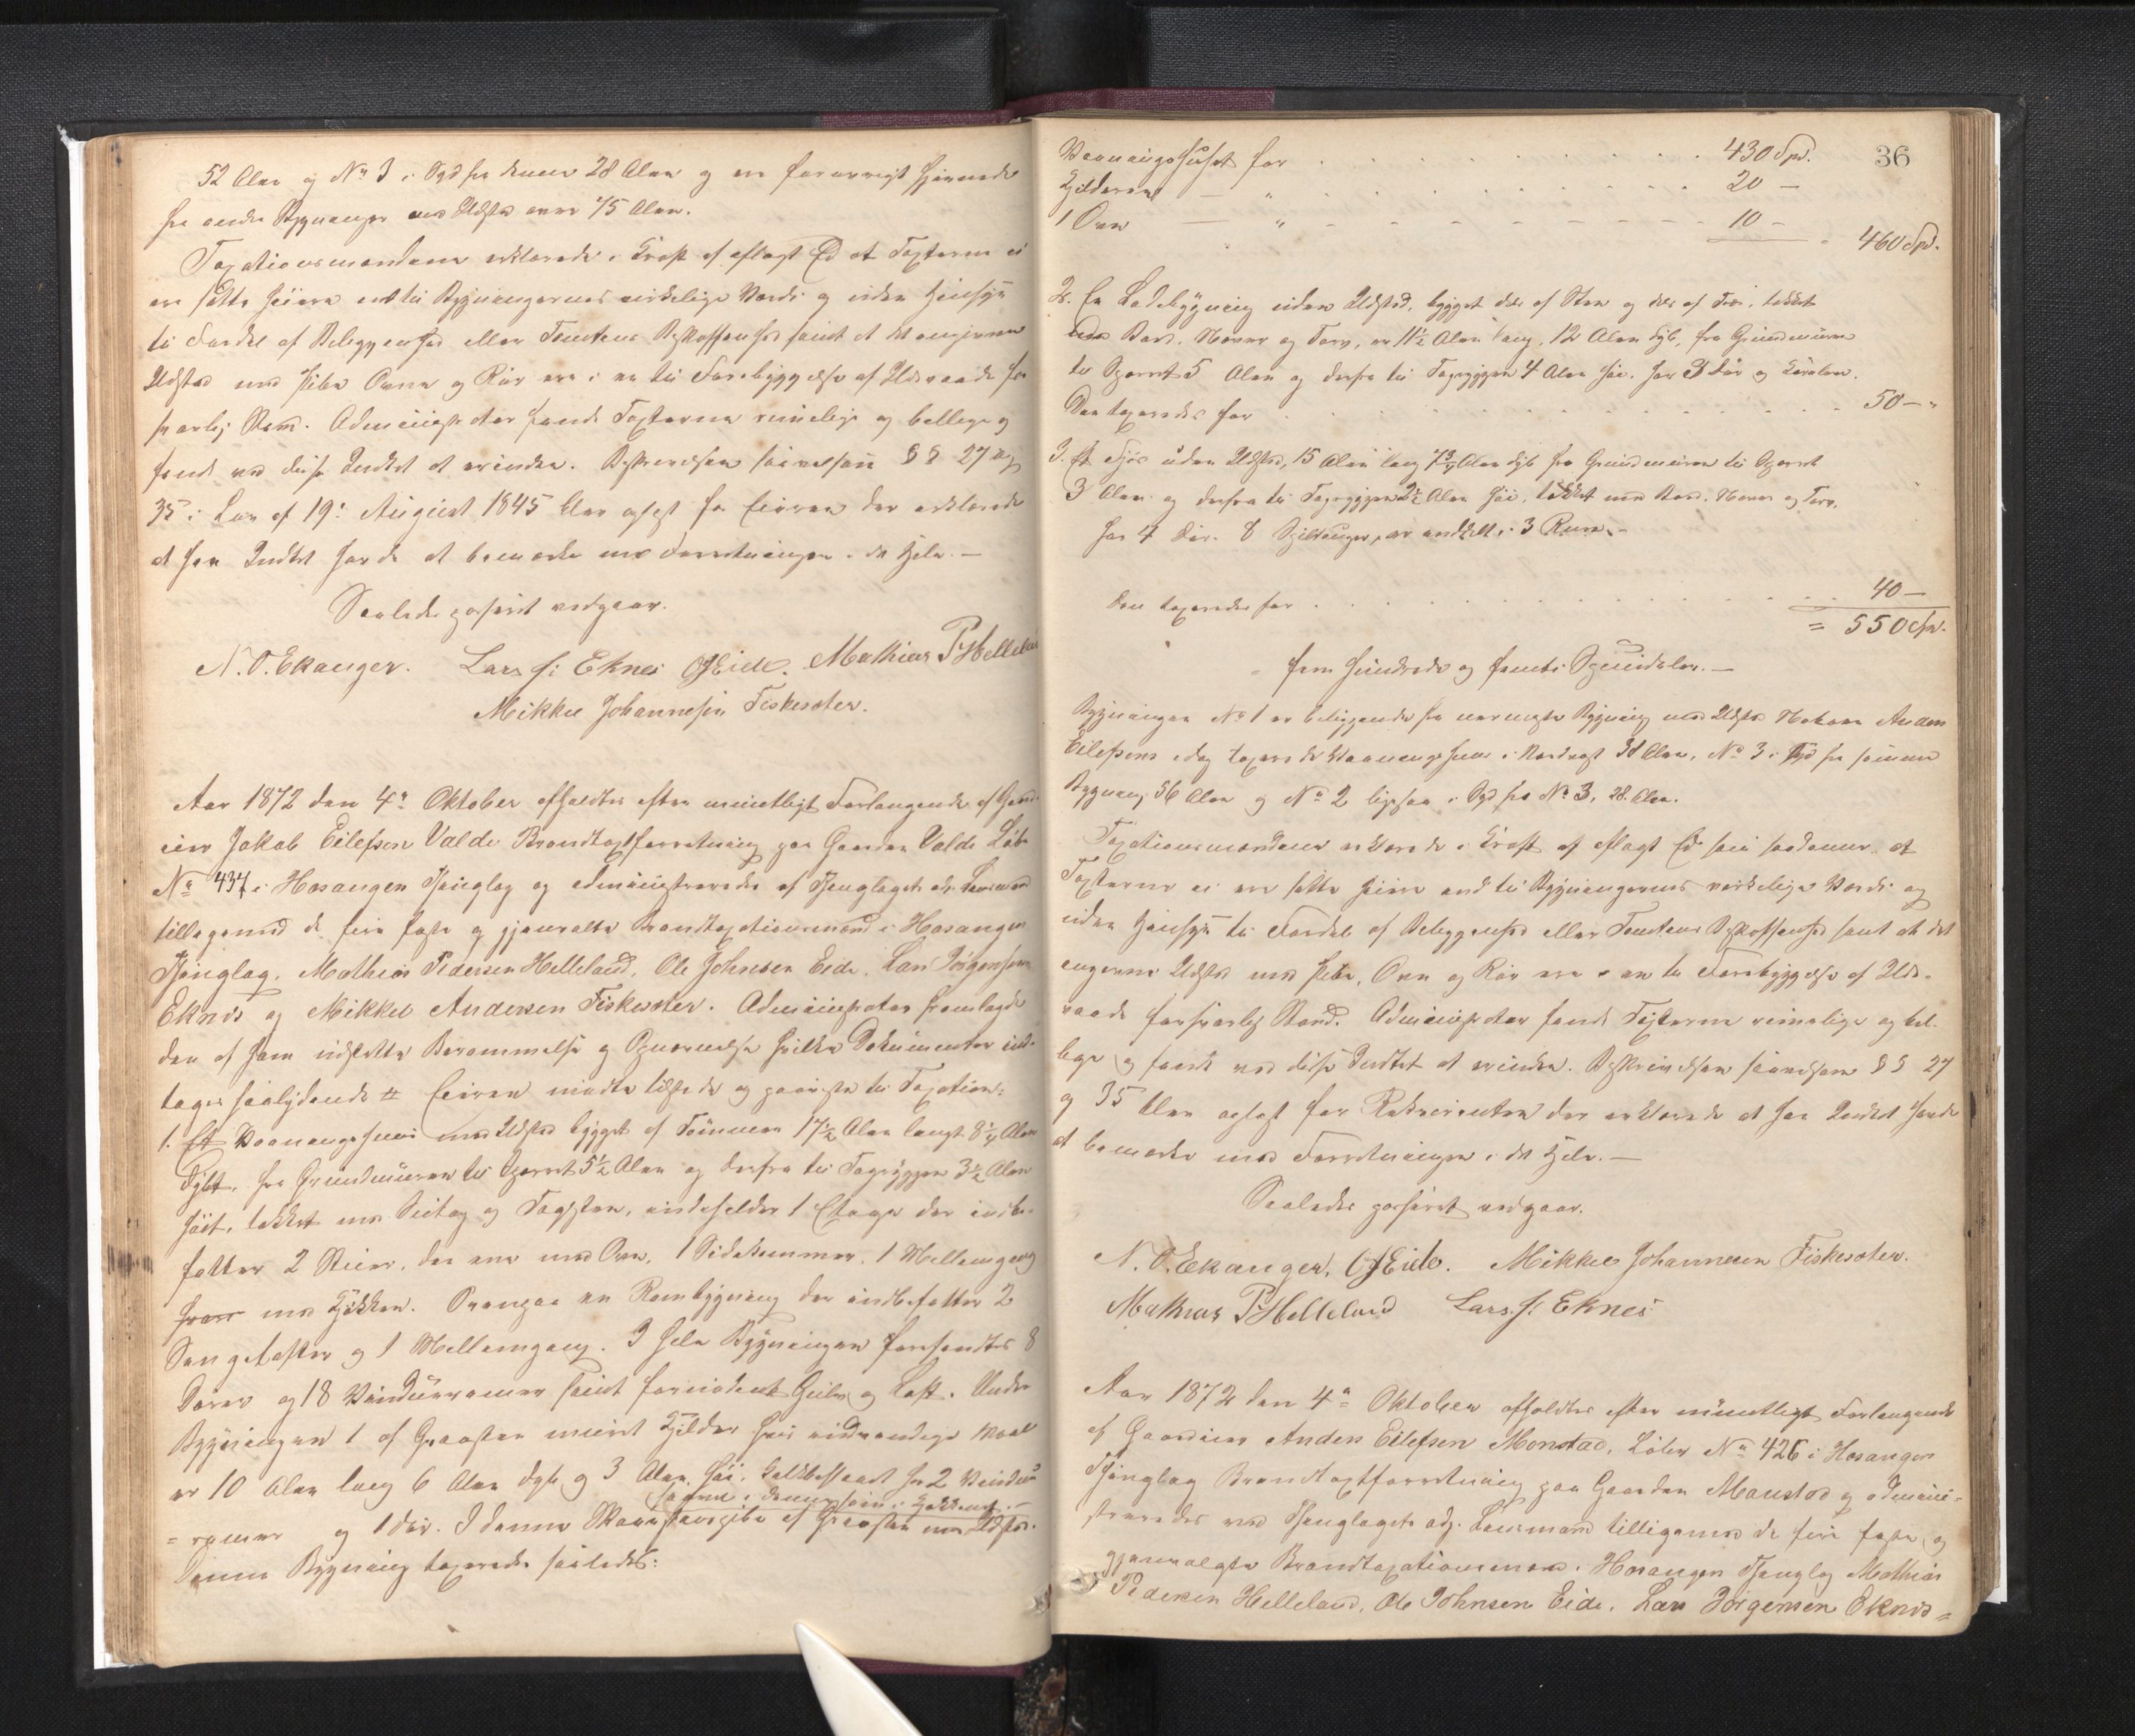 52 Alen og No 3 i Syd fra denne 28 Alen og ere forøvrigt fjernede
fra andre Bygninger med Ildsted over 75 Alen.
Taxationsmændene erklærede i Kraft af aflagt Ed at Taxterne ei
ere satte høiere end til Bygningernes virkelige Værdi og uden Hensyn
til Fordel af Beliggenhed eller Tomtens Beskaffenhed samt at de angivne
Ildsted med Pibe Ovne og Rør ere i en til Forebyggelse af Ildsvaade for-
svarlig Stand. Administrator fandt Taxterne rimelige og billige og
fandt ved disse Intet at erindre. Beskrivelsen saavelsom §§ 27 og
35 i Lov af 19de August 1845 blev oplæst for Eieren der erklærede
at han Intet havde at bemærke ved Forretningen i det Hele. —
Saaledes passeret vedgaar.
N. O. Ekanger. Lars J: Eknes OJEide. Mathias PHelleland
Mikkel Johannesen Fiskeseter.
Aar 1872 den 4de Oktober afholdtes efter mundtligt Forlangende af Gaard-
eier Jakob Eilefsen Valde Brandtaxtforretning paa Gaarden Valde Løbe
No 437 i Hosanger Thinglag og administreredes af Thinglagets adj. Lensmand
tilligemed de fire faste og gjenvalgte Brandtaxationsmænd i Hosanger
Thinglag, Mathias Pedersen Helleland, Ole Johnsen Eide, Lars Jørgensen
Eknes og Mikkel Andersen Fiskeseter. Administrator fremlagde
den af ham udstedte Berammelse og Opnævnelse hvilke Dokumenter ind-
tages saalydende # Eieren mødte tilstede og paaviste til Taxation:
1. Et Vaaningshuus med Ildsted bygget af Tømmer 17½ Alen langt 8¼ Alen
dybt, fra Grundmuren til Gesimset 5½ Alen og derfra til Tagryggen 3½ Alen
høit, tækket med Sutag og Tagsten, indeholder 1 Etage der indbe-
fatter 2 Stuer, den ene med Ovn, 1 Sidekammer, 1 Mellemgang
med Kjøkken. Ovenpaa en Rambygning der indbefatter 2
Sengeloftер og 1 Mellemgang. I hele Bygningen forefandtes 8
Døre og 18 Vinduesrammer samt fornødent Gulv og Loft. Under
Bygningen 1 af Graasten muret Kjelder hvis indvendige Maal
er 10 Alen lang 6 Alen dyb og 3 Alen høi, har 2 Vindues-
rammer og 1 Dør. I denne Skorstenspibe af Graasten med Ildsted.
Denne Bygning taxeredes saaledes:
36
Vaaningshuset for . . . 430 Spd.
Kjelderen — " . . . 20 —
1 Ovn — " - - - 10 -
460 Spd.
2. En Ladebygning uden Ildsted, bygget dels af Sten og dels af Træ, tækket
med Bord, Næver og Torv, er 11½ Alen lang, 12 Alen dyb, fra Grundmuren
til Gesimset 5 Alen og derfra til Tagryggen 4 Alen høi, har 3 Dør og Lovalem.
Den taxeredes for . . . 50 — "
3. Et Fjøs uden Ildsted, 15 Alen lang 7¾ Alen dyb fra Grundmuren til Gesimset
3 Alen og derfra til Tagryggen 2½ Alen høi, tækket med Bord, Næver og Torv,
har 4 Dør. 8 Gildinger, er inddelt i 3 Rum. -
Den taxeredes for . . . 40 —
= 550 Spd.
fem hundrede og femti Speciedaler. —
Bygningen No 1 er beliggende fra nærmeste Bygning med Ildsted Naboen Anders
Eilefsens idag taxerede Vaaningshuus i Nordvest 38 Alen, No 3 i Syd fra samme
Bygning 56 Alen og No 2 ligesaa i Syd fra No 3, 28 Alen.
Taxationsmændene erklærede i Kraft af aflagt Ed som saadanne at
Taxterne ei ere satte høiere end til Bygningernes virkelige Værdi og
uden Hensyn til Fordel af Beliggenhed eller Tomtens Beskaffenhed samt at det
angivne Ildsted med Pibe, Ovn og Rør ere i en til Forebyggelse af Ild-
svaade forsvarlig Stand. Administrator fandt Taxterne rimelige og bil-
lige og fandt ved disse Intet at erindre. Beskrivelsen saavelsom §§ 27
og 35 blev oplæst for Rekvirenten der erklærede at han Intet havde
at bemærke ved Forretningen i det Hele. —
Saaledes passeret vedgaar.
N. O. Ekanger, OJEide. Mikkel Johannesen Fiskeseter.
Mathias PHelleland Lars. J: Eknes
Aar 1872 den 4de Oktober afholdtes efter mundtligt Forlangende
af Gaardeier Anders Eilefsen Monstad, Løbe No 426 i Hosanger
Thinglag Brandtaxtforretning paa Gaarden Monstad og admini-
streredes ved Thinglagets adj. Lensmand tilligemed de fire faste og
gjenvalgte Brandtaxationsmænd i Hosanger Thinglag Mathias
Pedersen Helleland, Ole Johnsen Eide, Lars Jørgensen Eknes =